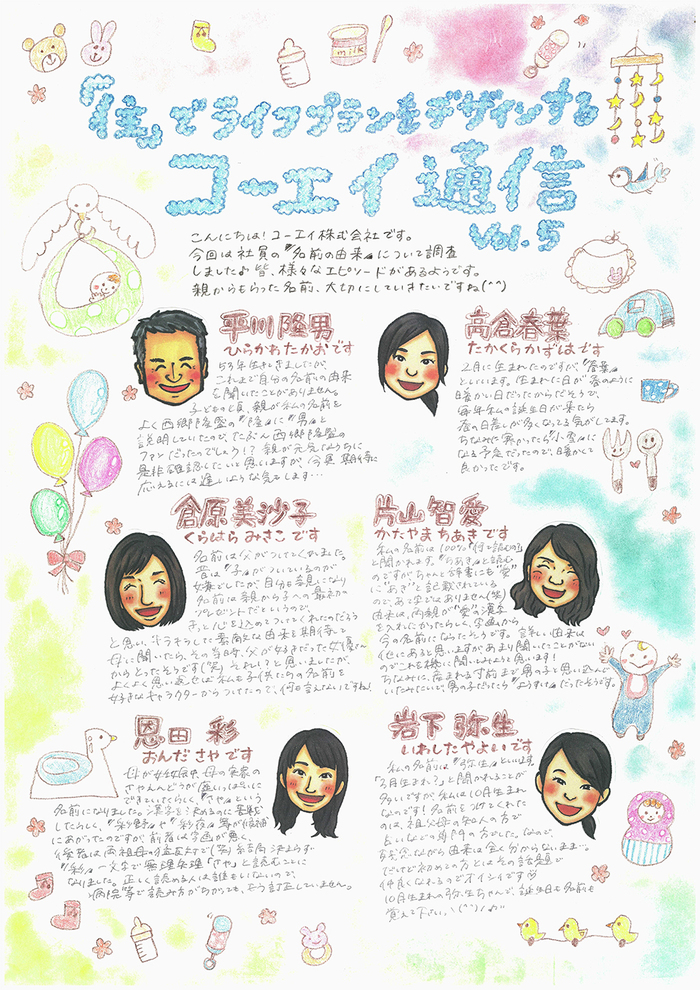 『住』でライフプランをデザインする
コーエイ通信
vol.5
こんにちは！コーエイ株式会社です。
今回は社員の『名前の由来』について調査
しました♪皆、様々なエピソードがあるようです。
親からもらった名前、大切にしていきたいですね(^^)
平川隆男
ひらかわたかおです
53年生きてきましたが、
これまで自分の名前の由来
を聞いたことがありません。
子どもの頃、親が私の名前を
よく西郷隆盛の『隆』に『男』と
説明していたので、たぶん西郷隆盛の
ファンだったのでしょう！？親が元気なうちに
是非確認したいと思いますが、今更期待に
応えるには遅いような気もします…
高倉春葉
たかくらかずはです
2月に生まれたのですが『春葉』
といいます。生まれた日が春のように
暖かい日だったからだそうで、
毎年私の誕生日が来たら
春の日差しが多くなってる気がしてます。
ちなみに寒かったら『小雪』に
なる予定だったので、暖かくて
良かったです。
倉原美沙子
くらはらみさこです
名前は父がつけてくれました。
昔は『子』がついているのが
嫌でしたが、自分も親になり
名前は親から子への最初の
プレゼントだというので、
きっと心を込めてつけてくれたのだろう
と思い、キラキラした素敵な由来を期待して
母に聞いたら、その当時、父が好きだった女優さん
からとったそうです(笑)それい！？と思いましたが、
よくよく思い返せば私も子供たちの名前を
好きなキャラクターからつけたので、何も言えないですね！
片山智愛
かたやまちあきです
私の名前は100%『何と読むの？』
と聞かれます。『ちあき』と読む
のですがちゃんと辞書にも『愛』
に『あき』と記載されている
ので、あて字ではありません(笑)
由来は、両親が『愛』の漢字
を入れたかったらしく、字画から
今の名前になったそうです。詳しい由来は
他にあると思いますがあまり聞いたことがない
のでこれを機に聞いてみようと思います！
ちなみに、産まれる寸前まで男の子と思い込んで
いたみたいで、男の子だったら『ようすけ』だったそうです。
恩田 彩
おんださやです
母が妊娠中、母の実家の
さやえんどうが
できていたらしく、『さや』という
名前になりました。漢字を決めるのに苦戦
したらしく、『彩野』や『彩夜』等が候補
にあがったのですが、前者は字画が悪く、
後者は両祖母の猛反対で(笑)結局決まらず
『彩』一文字で無理矢理『さや』と読むことに
なりました。正しく読める人は誰もいないので、
病院等で読み方がちがっても、もう訂正していません。
岩下 弥生
いわしたやよいです
私の名前は『弥生』といいます。
『3月生まれ？』と聞かれることが
多いですが、私は10月生まれ
なのです！名前をつけてくれた
のは、祖父母の知人の方で
占いなどの専門の方でした。なので、
残念ながら由来は全く分からないまま…。
だけど初めての方とはその話題で
仲良くなれるのでオイシイです
10月生まれの弥生ちゃんで、誕生日も名前も
覚えて下さい、＼(^^)／♪
milk